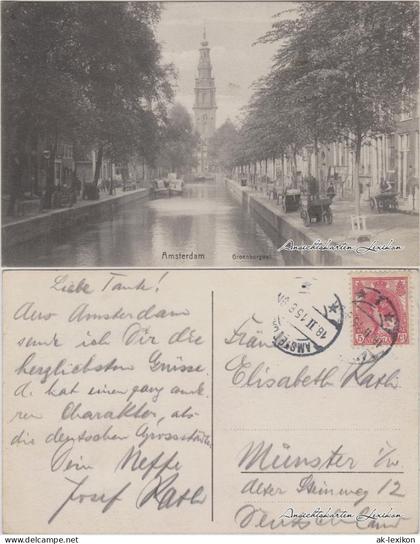 Amsterdam Groenburgwal.
Ansichtskarten Lexikon
Liebe Tante!
Aus Amsterdam
sende ich Dir die
herzlichsten Grüsse.
A. hat einen ganz ande-
ren Charakter, als
die deutschen Grossstädte.
Dein Neffe
Josef
AMSTERDAM
18 II 15
Fräu
Elisabeth
Münster i/w.
alter Steinweg 12
Deutschland
Ansichtskarten Lexikon
www.ansichtskarten-lexikon.de
ak-lexikon